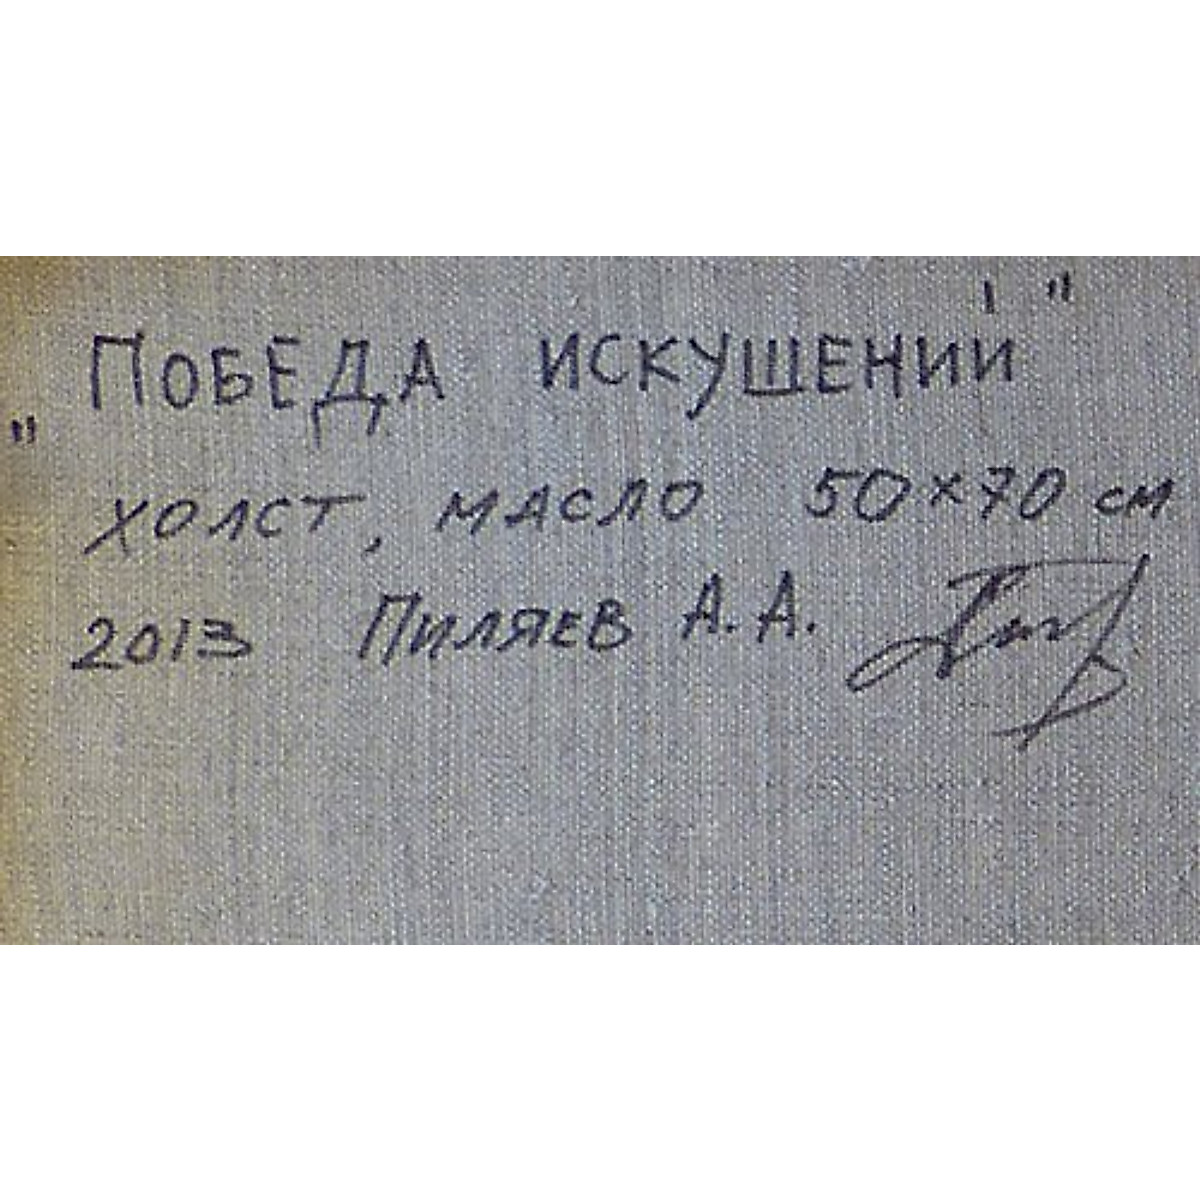 "ПОБЕДА ИСКУШЕНИЙ"
ХОЛСТ, МАСЛО 50×70 см
2013 Пиляев А.А.